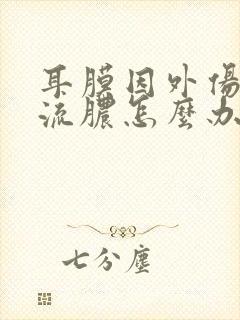 耳膜因外傷
流膿怎麼办
七分塵